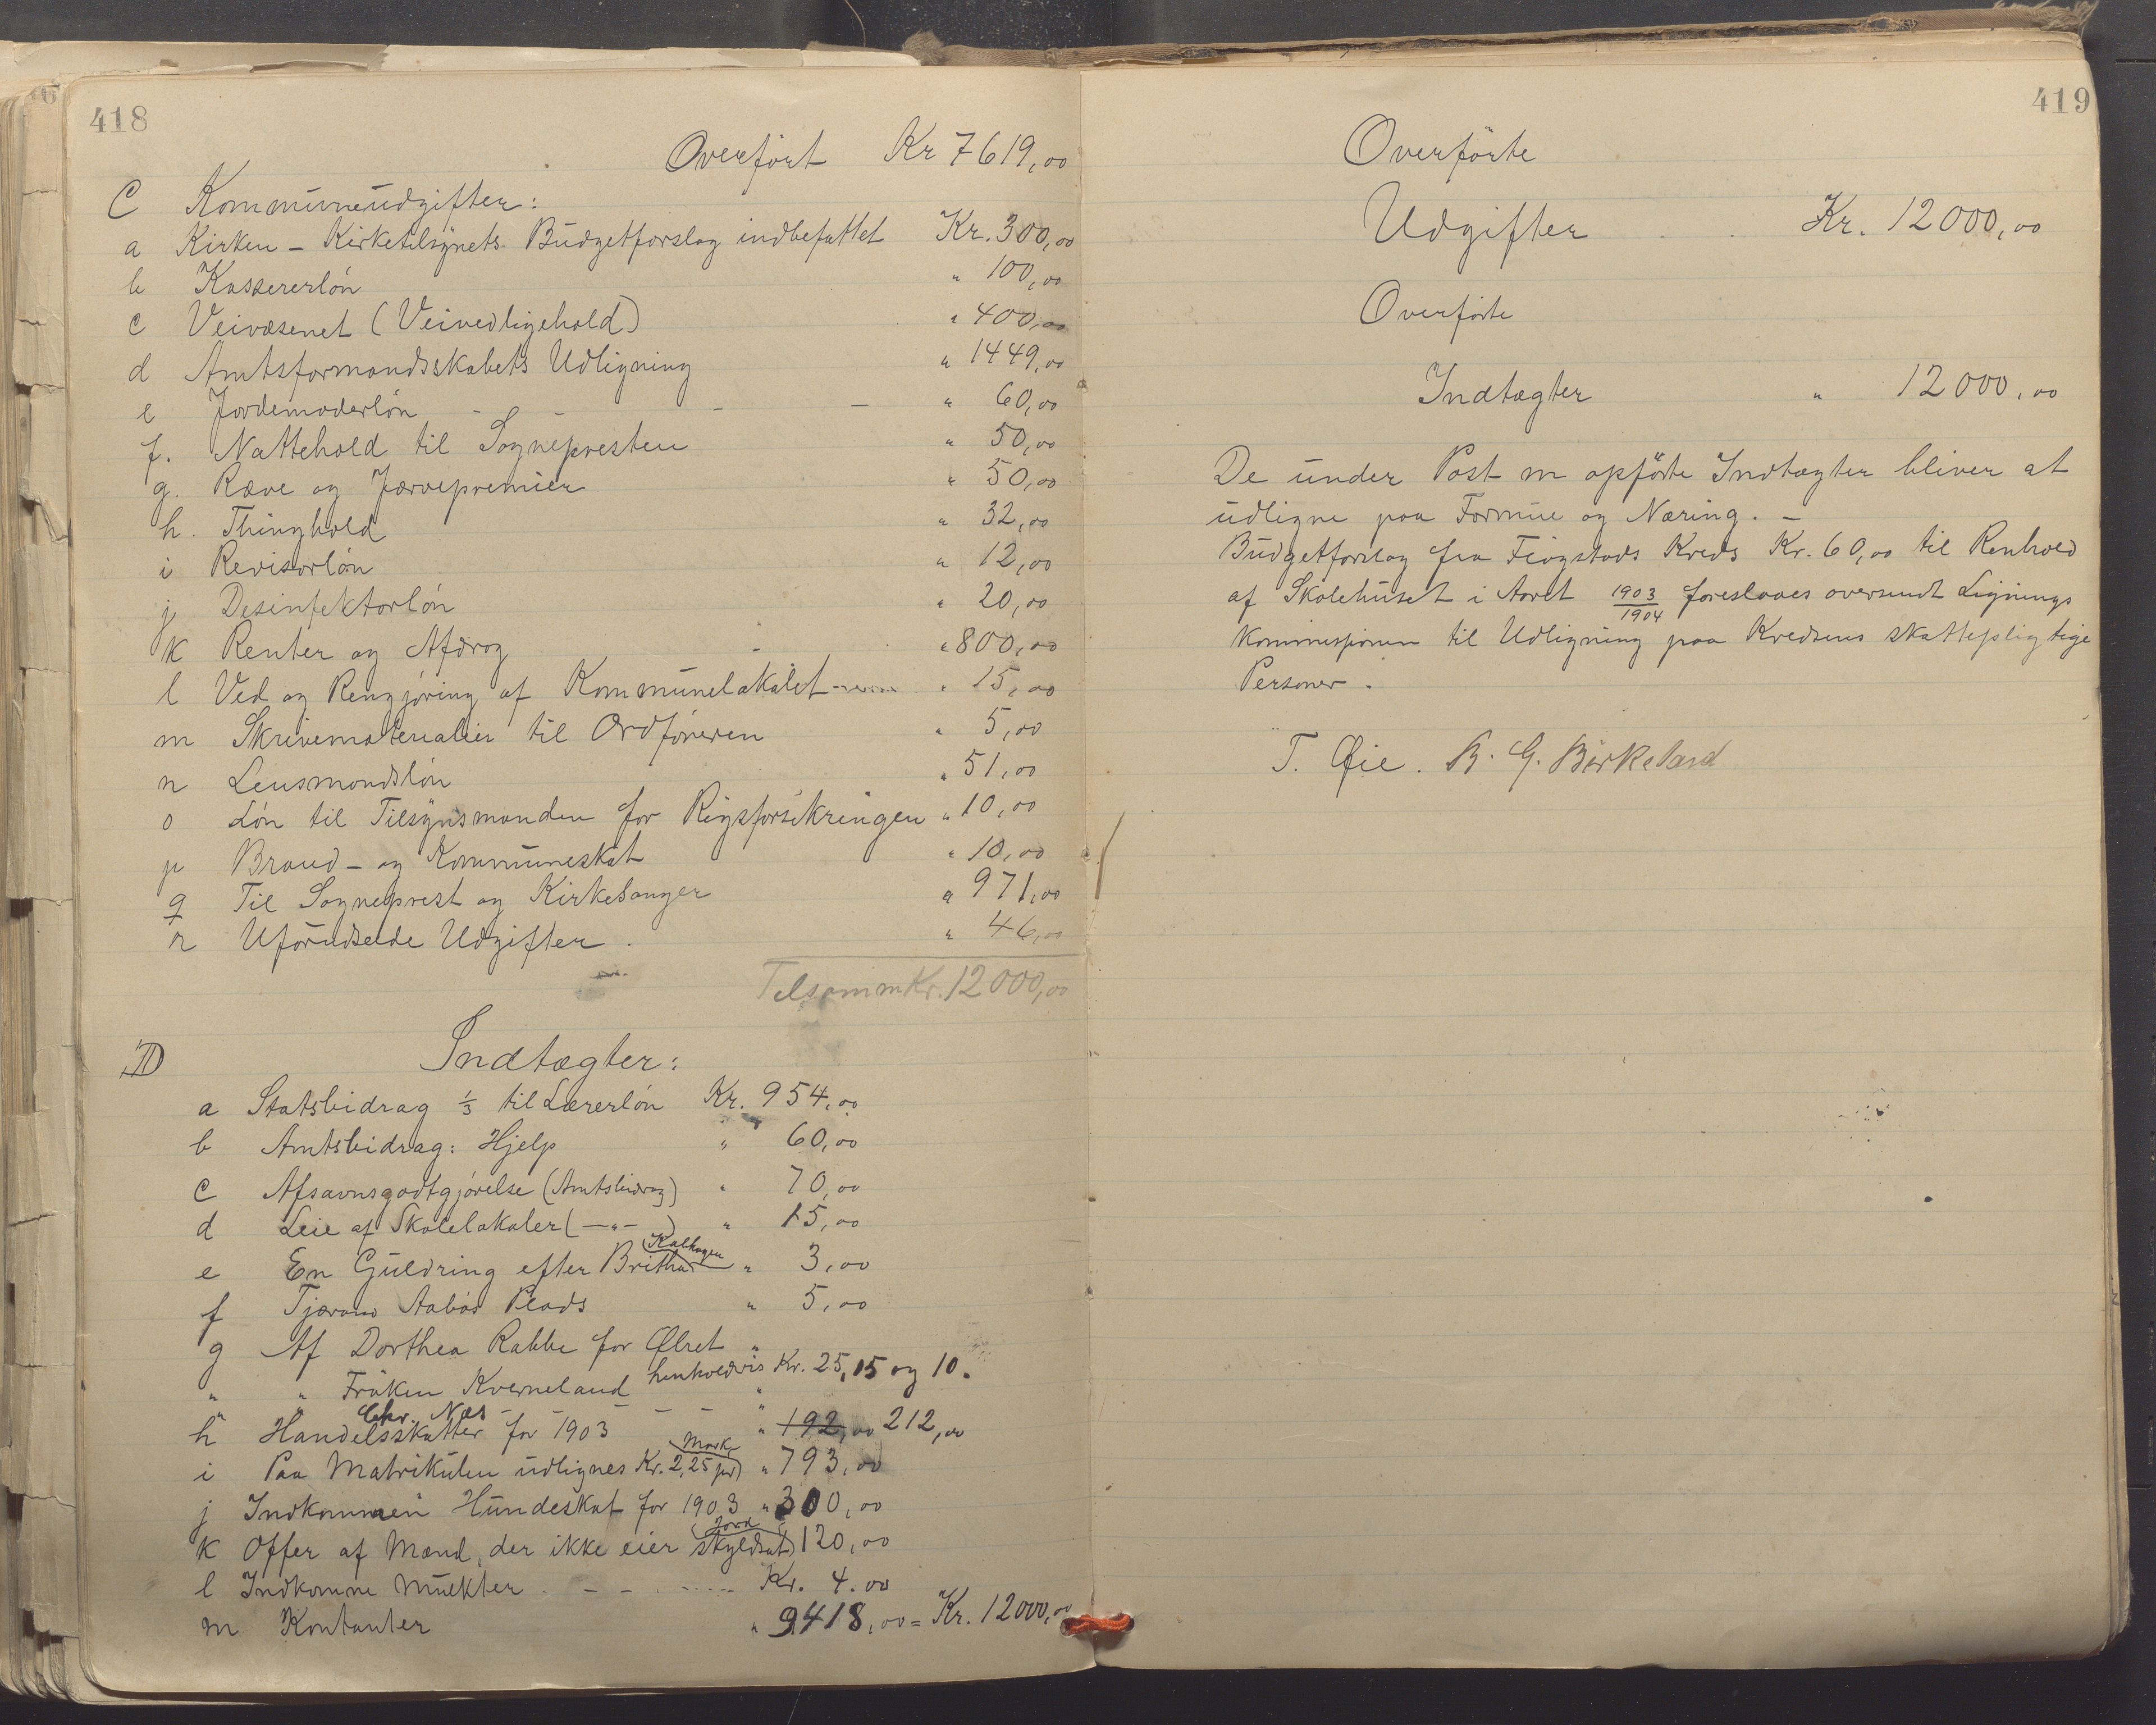 418
Overført Kr 7619,00
C Kommuneudgifter:
a Kirken – Kirketilsynets Budgetforslag indbefattet Kr. 300,00
b Kassererløn " 100,00
c Veivæsenet (Veivedligehold) " 400,00
d Amtsformandsskabets Udligning " 1449,00
e Jordemoderløn - - - - " 60,00
f. Nattehold til Sognepresten " 50,00
g. Ræve og Jærvepremier " 50,00
h. Thinghold " 32,00
i Revisorløn " 12,00
j Desinfektorløn " 20,00
k Renter og Afdrag " 800,00
l Ved og Rengjøring af Kommunelokalet " 15,00
m Skrivematerialier til Ordføreren " 5,00
n Lensmandsløn " 51,00
o Løn til Tilsynsmanden for Rigsforsikringen " 10,00
p Brand- og Kommuneskat " 10,00
q Til Sogneprest og Kirkesanger " 971,00
r Uforudseede Udgifter. " 46,00
Tilsamm Kr. 12000,00
D Indtægter:
a Statsbidrag 1/3 til Lærerløn Kr. 954,00
b Amtsbidrag: Hjelp " 60,00
c Afsavnsgodtgjørelse (Amtsbidrag) " 70,00
d Leie af Skolelokaler (—"—) " 15,00
e En Guldring efter Britha Kalhagen " 3,00
f Tjæran Aabøs Plads " 5,00
g Af Dorthea Rabbe for Ølret "
" " Frøken Kverneland henholdsvis Kr. 25, 15 og 10.
" Chr. Næs - - - - "
h Handelsskatter for 1903 " 192,00 212,00
i Paa Matrikulen udlignes Kr. 2,25 pr Mark " 793,00
j Indkommen Hundeskat for 1903 " 300,00
k Offer af Mænd, der ikke eier skyldsat Jord 120,00
l Indkomne Mulkter - - - Kr. 4.00
m Kontanter " 9418,00 = Kr. 12000,00
419
Overførte
Udgifter Kr. 12000,00
Overførte
Indtægter " 12000,00
De under Post m opførte Indtægter bliver at
udligne paa Formue og Næring. –
Budgetforslag fra Fiøgstads Kreds Kr. 60,00 til Renhold
af Skolehuset i Aaret 1903/1904 foreslaaes oversendt Lignings
kommissjonen til Udligning paa Kredsens skattepligtige
Personer.
T. Øie. B. G. Birkeland